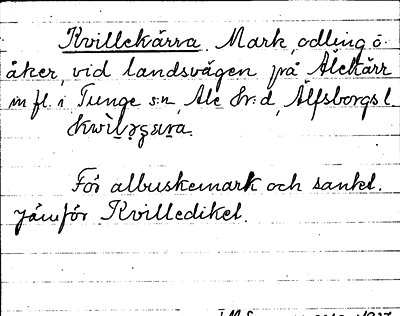 Kvillekärra. Mark, odling o.
åker, vid landsvägen på Älekärr
m fl. i Tunge s:n, Ale hr:d, Älfsborgs l.
För albuskemark och sankt.
Jämför Kvillediket.